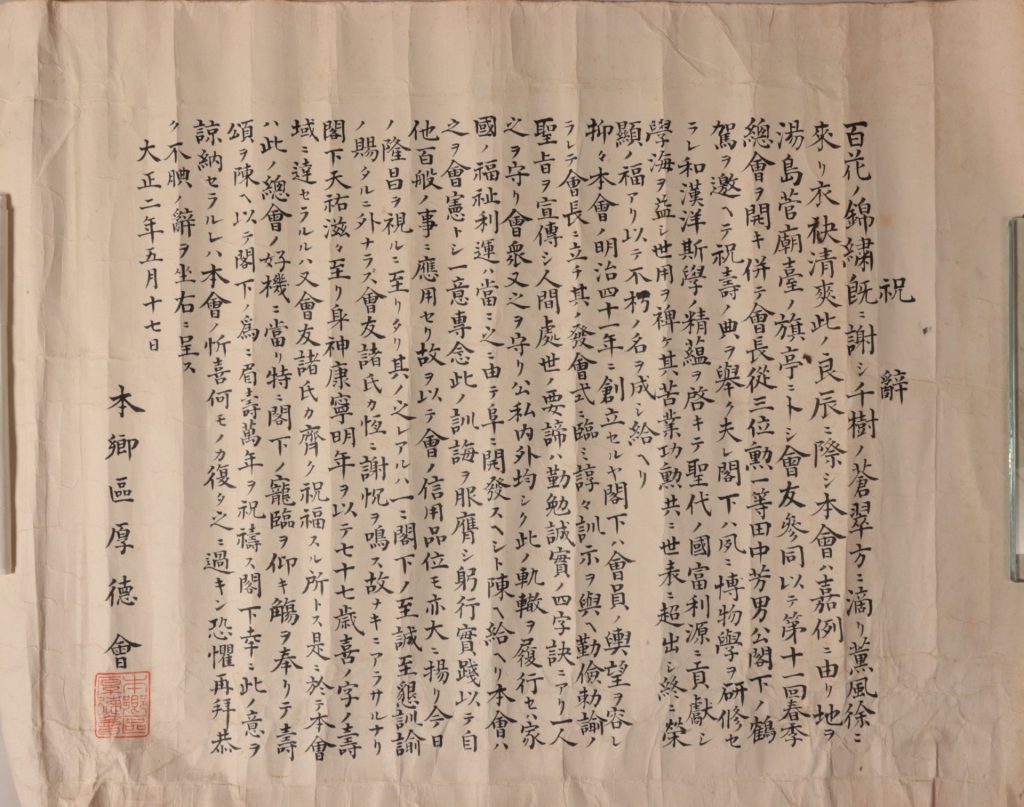 祝辭
百花ノ錦繍既ニ謝シ千樹ノ蒼翠方ニ滴リ薰風徐ニ
來リ衣袂清爽此ノ良辰ニ際シ本會ハ嘉例ニ由リ地ヲ
湯島菅廟臺ノ旗亭ニトシ會友參同以テ第十一回春季
總會ヲ開キ併テ會長從三位勳一等田中芳男公閣下ノ鶴
駕ヲ邀ヘテ祝壽ノ典ヲ舉ク夫レ閣下ハ夙ニ博物學ヲ研修セ
ラレ和漢洋斯學ノ精蘊ヲ啓キテ聖代ノ國富利源ニ貢獻シ
學海ヲ益シ世用ヲ裨ケ其苦業功勲共ニ世表ニ超出シ終ニ榮
顯ノ福アリ以テ不朽ノ名ヲ成シ給ヘリ
抑々本會ノ明治四十一年ニ創立セルヤ閣下ハ會員ノ輿望ヲ容レ
ラレテ會長ニ立チ其ノ發會式ニ臨ミ諄々訓示ヲ與ヘ勤儉勅諭ノ
聖旨ヲ宣傳シ人間處世ノ要諦ハ勤勉誠實ノ四字訣ニアリ一人
之ヲ守リ會衆又之ヲ守リ公私内外均シク此ノ軌轍ヲ履行セハ家
國ノ福祉利運ハ當ニ之ニ由テ阜ニ開發スヘシト陳ヘ給ヘリ本會ハ
之ヲ會憲トシ一意專念此ノ訓誨ヲ服膺シ躬行實踐以テ自
他百般ノ事ニ應用セリ故ヲ以テ會ノ信用品位モ亦大ニ揚リ今日
ノ隆昌ヲ視ルニ至リタリ其ノ之レアルハ一ニ閣下ノ至誠至懇訓諭
ノ賜タルニ外ナラス會友諸氏カ恆ニ謝怳ヲ鳴ス故ナキニアラサルナリ
閣下天祐滋々至リ身神康寧明年ヲ以テ七十七歳喜ノ字ノ壽
域ニ達セラルルハ又會友諸氏カ齊ク祝福スル所トス是ニ於テ本會
ハ此ノ總會ノ好機ニ當リ特ニ閣下ノ寵臨ヲ仰キ觴ヲ奉リテ壽
頌ヲ陳ヘ以テ閣下ノ爲ニ眉壽萬年ヲ祝禱ス閣下幸ニ此ノ意ヲ
諒納セラルレハ本會ノ忻喜何モノカ復タ之ニ過キン恐懼再拜恭
ク不腆ノ辭ヲ坐右ニ呈ス
大正二年五月十七日
本鄉區厚德會
本鄉區厚德會